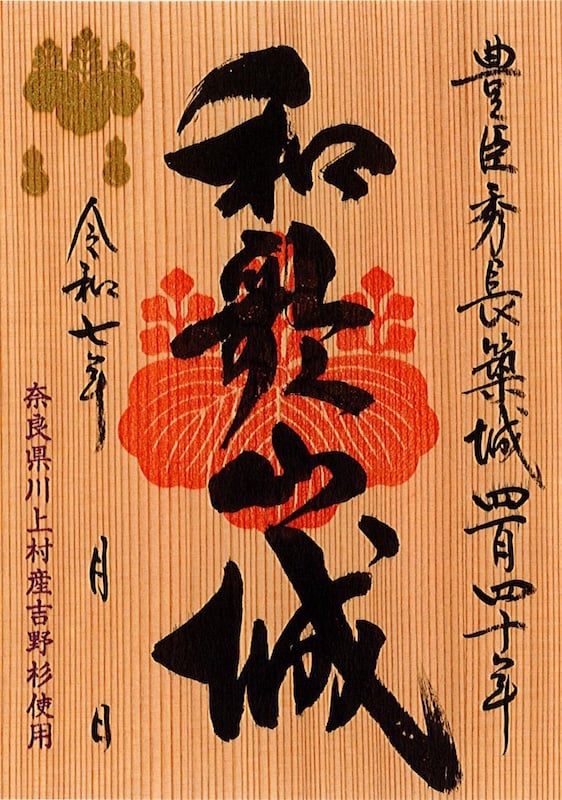 豊臣秀長築城四百四十年
和歌山城
令和七年 月 日
奈良県川上村産吉野杉使用